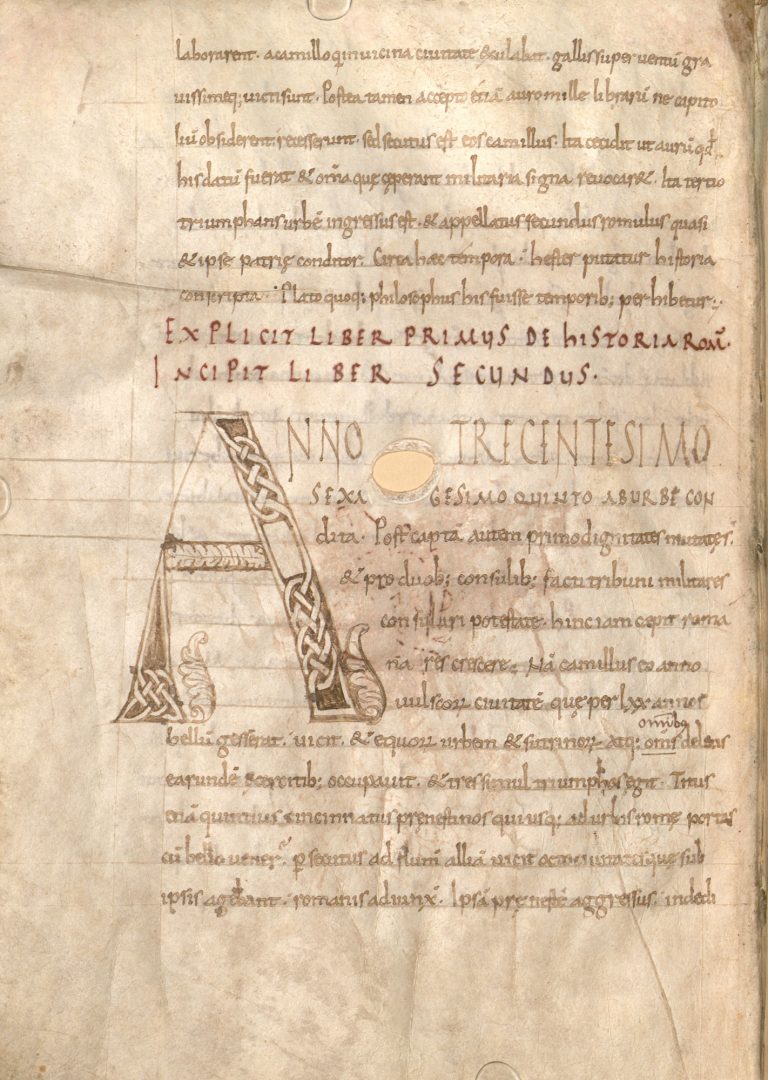 laborarent · acamillo q̄ in uicina ciuitate exulabat · gallis superuentū gra
uissimeq; uicti sunt · Postea tamen accepto etiā auro mille librarū ne capito
liū obsiderent recesserunt · sed secutus est eos camillus · Ita cecidit ut aurū qđ
his datū fuerat & om̄a quę cęperant militaria signa reuocar& · Ita tertio
triumphans urbē ingressus est · & appellatus secundus romulus quasi
& ipse patrię conditor · Circa haec tempora · hester putatur historia
conscripta · Plato quoq; philosophus his fuisse temporib; perhibetur ·
EXPLICIT LIBER PRIMUS DE hISTORIA ROM̄ ·
INCIPIT LIBER SECUNDUS ·
ANNO TRECENTESIMO
SEXAGESIMO QUINTO AB URBE CON
dita · Post captā autem primo dignitates mutatęs
& pro duob; consulib; facti tribuni militares
consulari potestate · hinc iam cepit roma
na res crescere · Nā camillus eo anno
uulscorꝝ ciuitatē quę per lxx annos
omībꝫ
bellū gesserat · uicit · & equorꝝ urbem & sutrinorꝝ atq; om̄is deletis
earundē exercitib; occupauit · & tres simul triumphos egit · Titus
etiā quintius cincinnatus pręnestinos qui usq; ad urbis romę portas
cū bello uener̄ · persecutus ad flum̄ alliā uicit octo ciuitates quę sub
ipsis agebant · romanis adiunx̄ · Ipsā pręnestē aggressus · in dedi